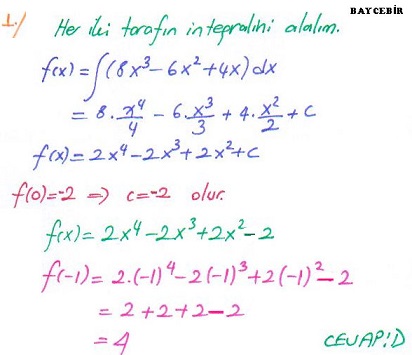 BAYCEBİR
1.) Her iki tarafın integralini alalım.
f(x) = ∫(8x³ - 6x² + 4x) dx
= 8 · x⁴/4 - 6 · x³/3 + 4 · x²/2 + c
f(x) = 2x⁴ - 2x³ + 2x² + c
f(0) = -2 ⇒ c = -2 olur.
f(x) = 2x⁴ - 2x³ + 2x² - 2
f(-1) = 2·(-1)⁴ - 2(-1)³ + 2(-1)² - 2
= 2 + 2 + 2 - 2
= 4
CEVAP: D